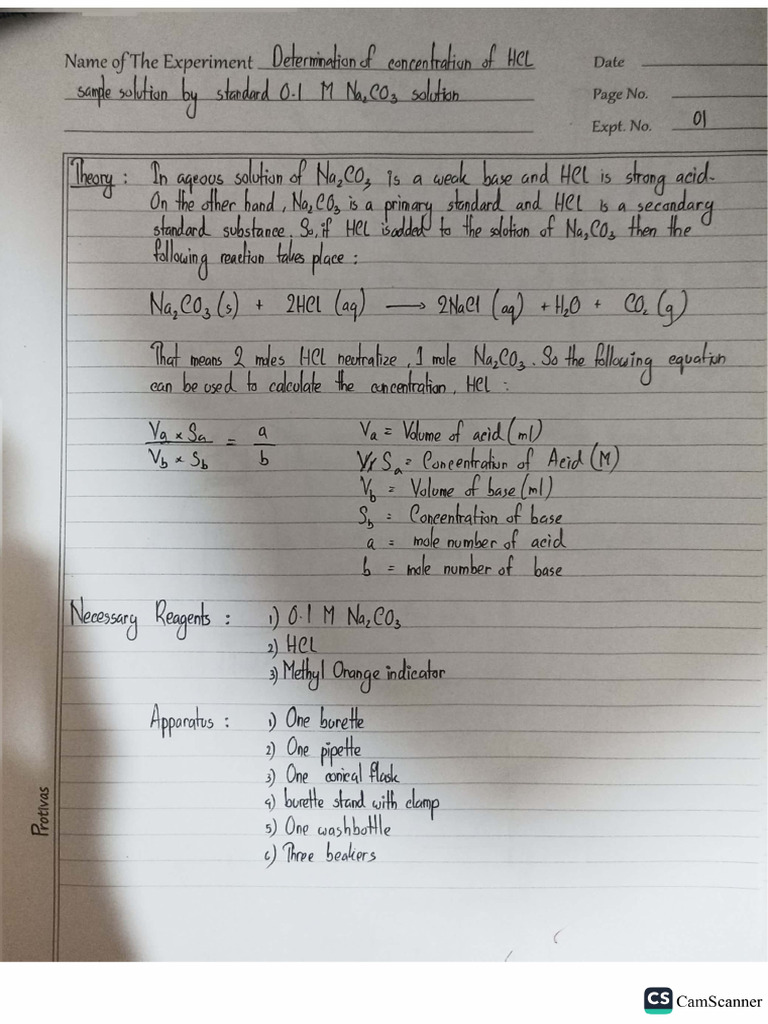 Name of The Experiment Determination of concentration of HCL
sample solution by standard 0.1 M Na₂CO₃ solution
Date
Page No.
Expt. No. 01
Theory : In aqeous solution of Na₂CO₃ is a weak base and HCl is strong acid.
On the other hand, Na₂CO₃ is a primary standard and HCl is a secondary
standard substance. So, if HCl is added to the solution of Na₂CO₃ then the
following reaction takes place :
Na₂CO₃ (s) + 2HCl (aq) ⟶ 2NaCl (aq) + H₂O + CO₂ (g)
That means 2 moles HCl neutralize, 1 mole Na₂CO₃. So the following equation
can be used to calculate the concentration, HCl :
Va × Sa / Vb × Sb = a / b
Va = Volume of acid (ml)
Sa = Concentration of Acid (M)
Vb = Volume of base (ml)
Sb = Concentration of base
a = mole number of acid
b = mole number of base
Necessary Reagents : 1) 0.1 M Na₂CO₃
2) HCL
3) Methyl Orange indicator
Apparatus : 1) One burette
2) One pipette
3) One conical flask
4) burette stand with clamp
5) One washbottle
6) Three beakers
Protivas
CS CamScanner